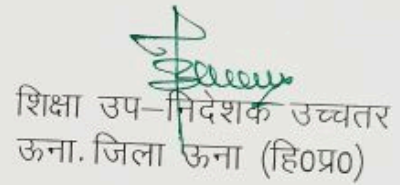 शिक्षा उप-निदेशक उच्चतर
ऊना. जिला ऊना (हि0प्र0)